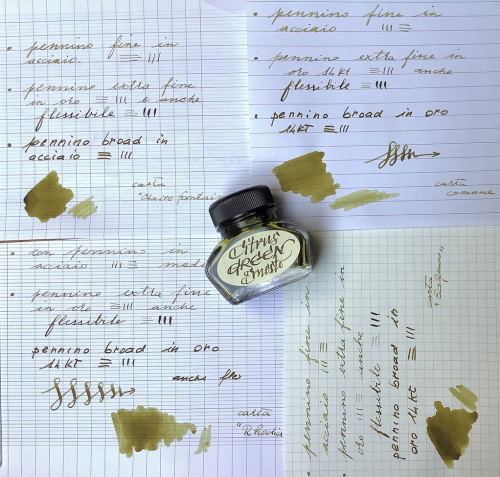 • pennino fine in
acciaio. ≡ |||
• pennino extra fine
in oro ≡ ||| e anche
flessibile ≡ |||
• pennino broad in
acciaio ≡ |||
carta
• pennino fine in
acciaio ||| ≡
• pennino extra fine
oro 14kt ≡ ||| anche
flessibile ≡ |||
• pennino broad in oro
14KT ≡ |||
carta
comune
Citrus
GREEN
• con pennino in
acciaio ||| ≡
• pennino extra fine
in oro ≡ ||| anche
flessibile ≡ |||
pennino broad in oro
14kt ≡ |||
anche flex
carta
"Rhodia
• pennino fine in
acciaio ||| ≡
• pennino extra fine in
oro ≡ ||| anche
flessibile ≡ |||
• pennino broad in
oro 14KT ≡ |||
carta